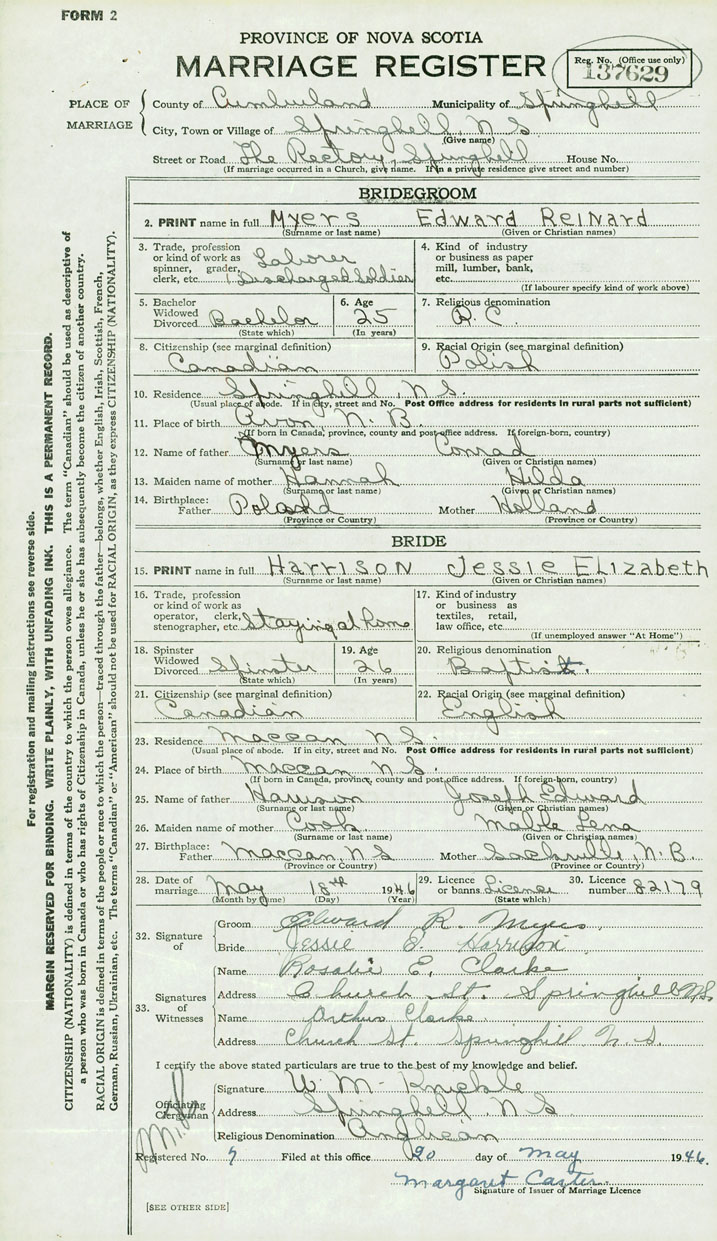 FORM 2
PROVINCE OF NOVA SCOTIA
MARRIAGE REGISTER
Reg. No. (Office use only)
137629
PLACE OF MARRIAGE
County of Cumberland Municipality of Springhill
City, Town or Village of Springhill, N S
(Give name)
Street or Road The Rectory, Springhill House No.
(If marriage occurred in a Church, give name. If in a private residence give street and number)
BRIDEGROOM
2. PRINT name in full MYERS EDWARD REINARD
(Surname or last name) (Given or Christian names)
3. Trade, profession or kind of work as spinner, grader, clerk, etc. Laborer Discharged Soldier
4. Kind of industry or business as paper mill, lumber, bank, etc.
(If labourer specify kind of work above)
5. Bachelor Widowed Divorced Bachelor (State which)
6. Age 25 (In years)
7. Religious denomination R. C.
8. Citizenship (see marginal definition) Canadian
9. Racial Origin (see marginal definition) Polish
10. Residence Springhill, N S.
(Usual place of abode. If in city, street and No. Post Office address for residents in rural parts not sufficient)
11. Place of birth Avon, N. B.
(If born in Canada, province, county and post office address. If foreign-born, country)
12. Name of father Myers Conrad
(Surname or last name) (Given or Christian names)
13. Maiden name of mother Hannah Hilda
(Surname or last name) (Given or Christian names)
14. Birthplace: Father Poland Mother Holland
(Province or Country) (Province or Country)
BRIDE
15. PRINT name in full HARRISON JESSIE ELIZABETH
(Surname or last name) (Given or Christian names)
16. Trade, profession or kind of work as operator, clerk, stenographer, etc. Staying at home
17. Kind of industry or business as textiles, retail, law office, etc.
(If unemployed answer "At Home")
18. Spinster Widowed Divorced Spinster (State which)
19. Age 26 (In years)
20. Religious denomination Baptist.
21. Citizenship (see marginal definition) Canadian
22. Racial Origin (see marginal definition) English
23. Residence Maccan N S.
(Usual place of abode. If in city, street and No. Post Office address for residents in rural parts not sufficient)
24. Place of birth Maccan N S.
(If born in Canada, province, county and post office address. If foreign-born, country)
25. Name of father Harrison Joseph Edward
(Surname or last name) (Given or Christian names)
26. Maiden name of mother Cook Mable Lena
(Surname or last name) (Given or Christian names)
27. Birthplace: Father Maccan N S Mother Sackville, N. B.
(Province or Country) (Province or Country)
28. Date of marriage May 18th 1946
(Month by name) (Day) (Year)
29. Licence or banns License (State which)
30. Licence number 82179
32. Signature of
Groom Edward R. Myers
Bride Jessie E. Harrison
33. Signatures of Witnesses
Name Rosalie E. Clarke
Address Church St. Springhill N.S.
Name Arthur Clarke.
Address Church St. Springhill N. S.
I certify the above stated particulars are true to the best of my knowledge and belief.
Officiating Clergyman
Signature W. M. Knickle
Address Springhill, N S
Religious Denomination Anglican
Registered No. 7 Filed at this office 20 day of May 1946.
Margaret Caster
Signature of Issuer of Marriage Licence
[SEE OTHER SIDE]
For registration and mailing instructions see reverse side.
MARGIN RESERVED FOR BINDING. WRITE PLAINLY, WITH UNFADING INK. THIS IS A PERMANENT RECORD.
CITIZENSHIP (NATIONALITY) is defined in terms of the country to which the person owes allegiance. The term "Canadian" should be used as descriptive of
a person who was born in Canada or who has rights of Citizenship in Canada, unless he or she has subsequently become the citizen of another country.
RACIAL ORIGIN is defined in terms of the people or race to which the person—traced through the father—belongs, whether English, Irish, Scottish, French,
German, Russian, Ukrainian, etc. The terms "Canadian" or "American" should not be used for RACIAL ORIGIN, as they express CITIZENSHIP (NATIONALITY).